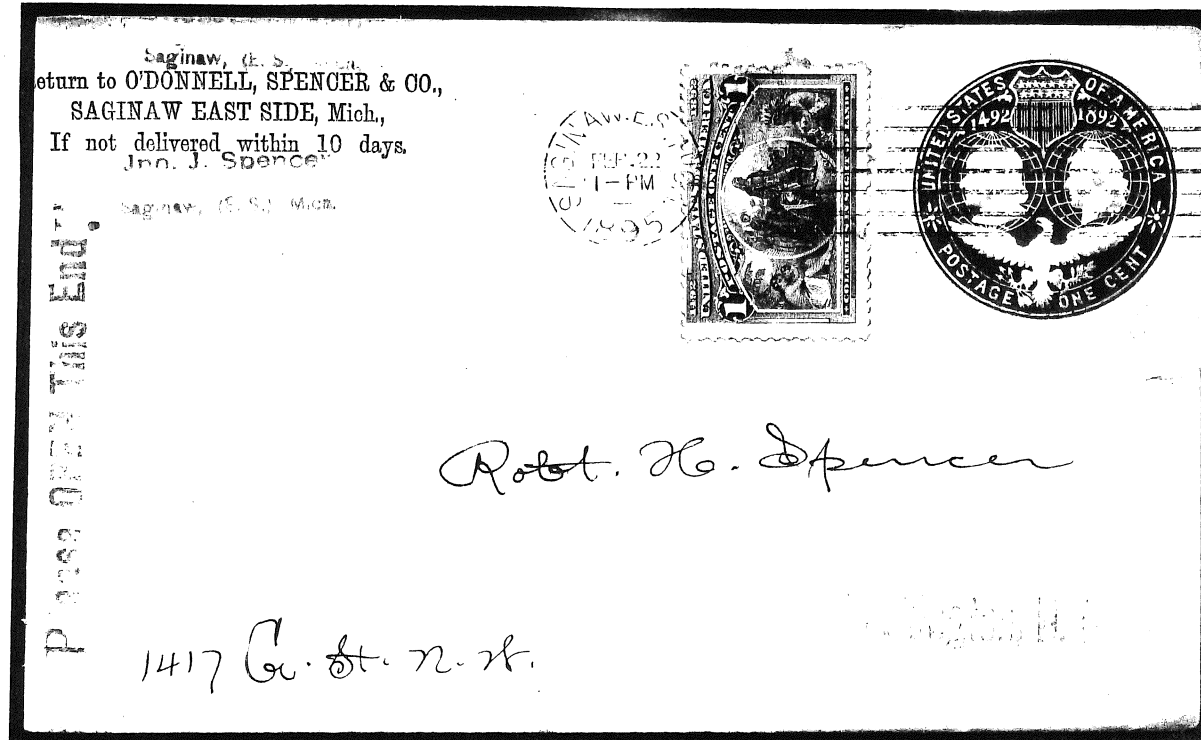 Saginaw, (E. S.
eturn to O'DONNELL, SPENCER & CO.,
SAGINAW EAST SIDE, Mich.,
If not delivered within 10 days.
Jno. J. Spencer
Saginaw, (E. S.) Mich.
Please OPEN This End."
SAGINAW.E.S.
FEB. 22
1-PM
1895
1
1
UNITED STATES OF AMERICA
1492 1892
POSTAGE ONE CENT
Robt. H. Spencer
1417 G. St. N. W.